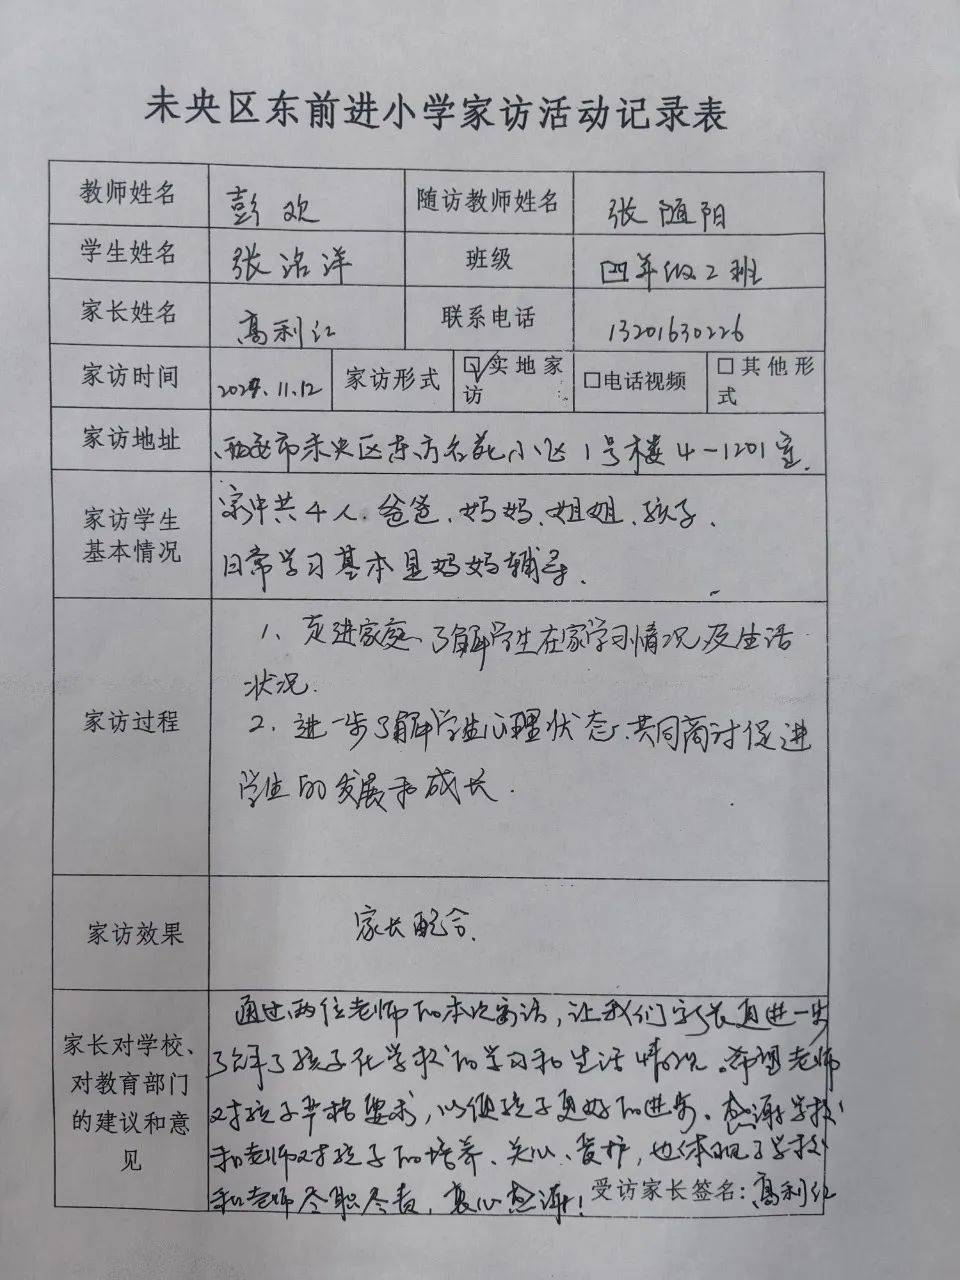 未央区东前进小学家访活动记录表
教师姓名 彭欢 随访教师姓名 张随阳
学生姓名 张洺洋 班级 四年级2班
家长姓名 高利红 联系电话 13201630226
家访时间 2024.11.12 家访形式 ☑实地家访 □电话视频 □其他形式
家访地址 西安市未央区东方名苑小区1号楼4-1201室.
家访学生
基本情况
家中共4人.爸爸、妈妈、姐姐、孩子.
日常学习基本是妈妈辅导.
家访过程
1、走进家庭、了解学生在家学习情况及生活
状况.
2.进一步了解学生心理状态、共同商讨促进
学生的发展和成长.
家访效果 家长配合.
家长对学校、
对教育部门
的建议和意
见
通过两位老师的本次家访,让我们家长更进一步
了解了孩子在学校的学习和生活情况。希望老师
对孩子严格要求,以便孩子更好的进步、感谢学校
和老师对孩子的培养、关心、爱护,也体现了学校
和老师尽职尽责,衷心感谢!
受访家长签名:高利红